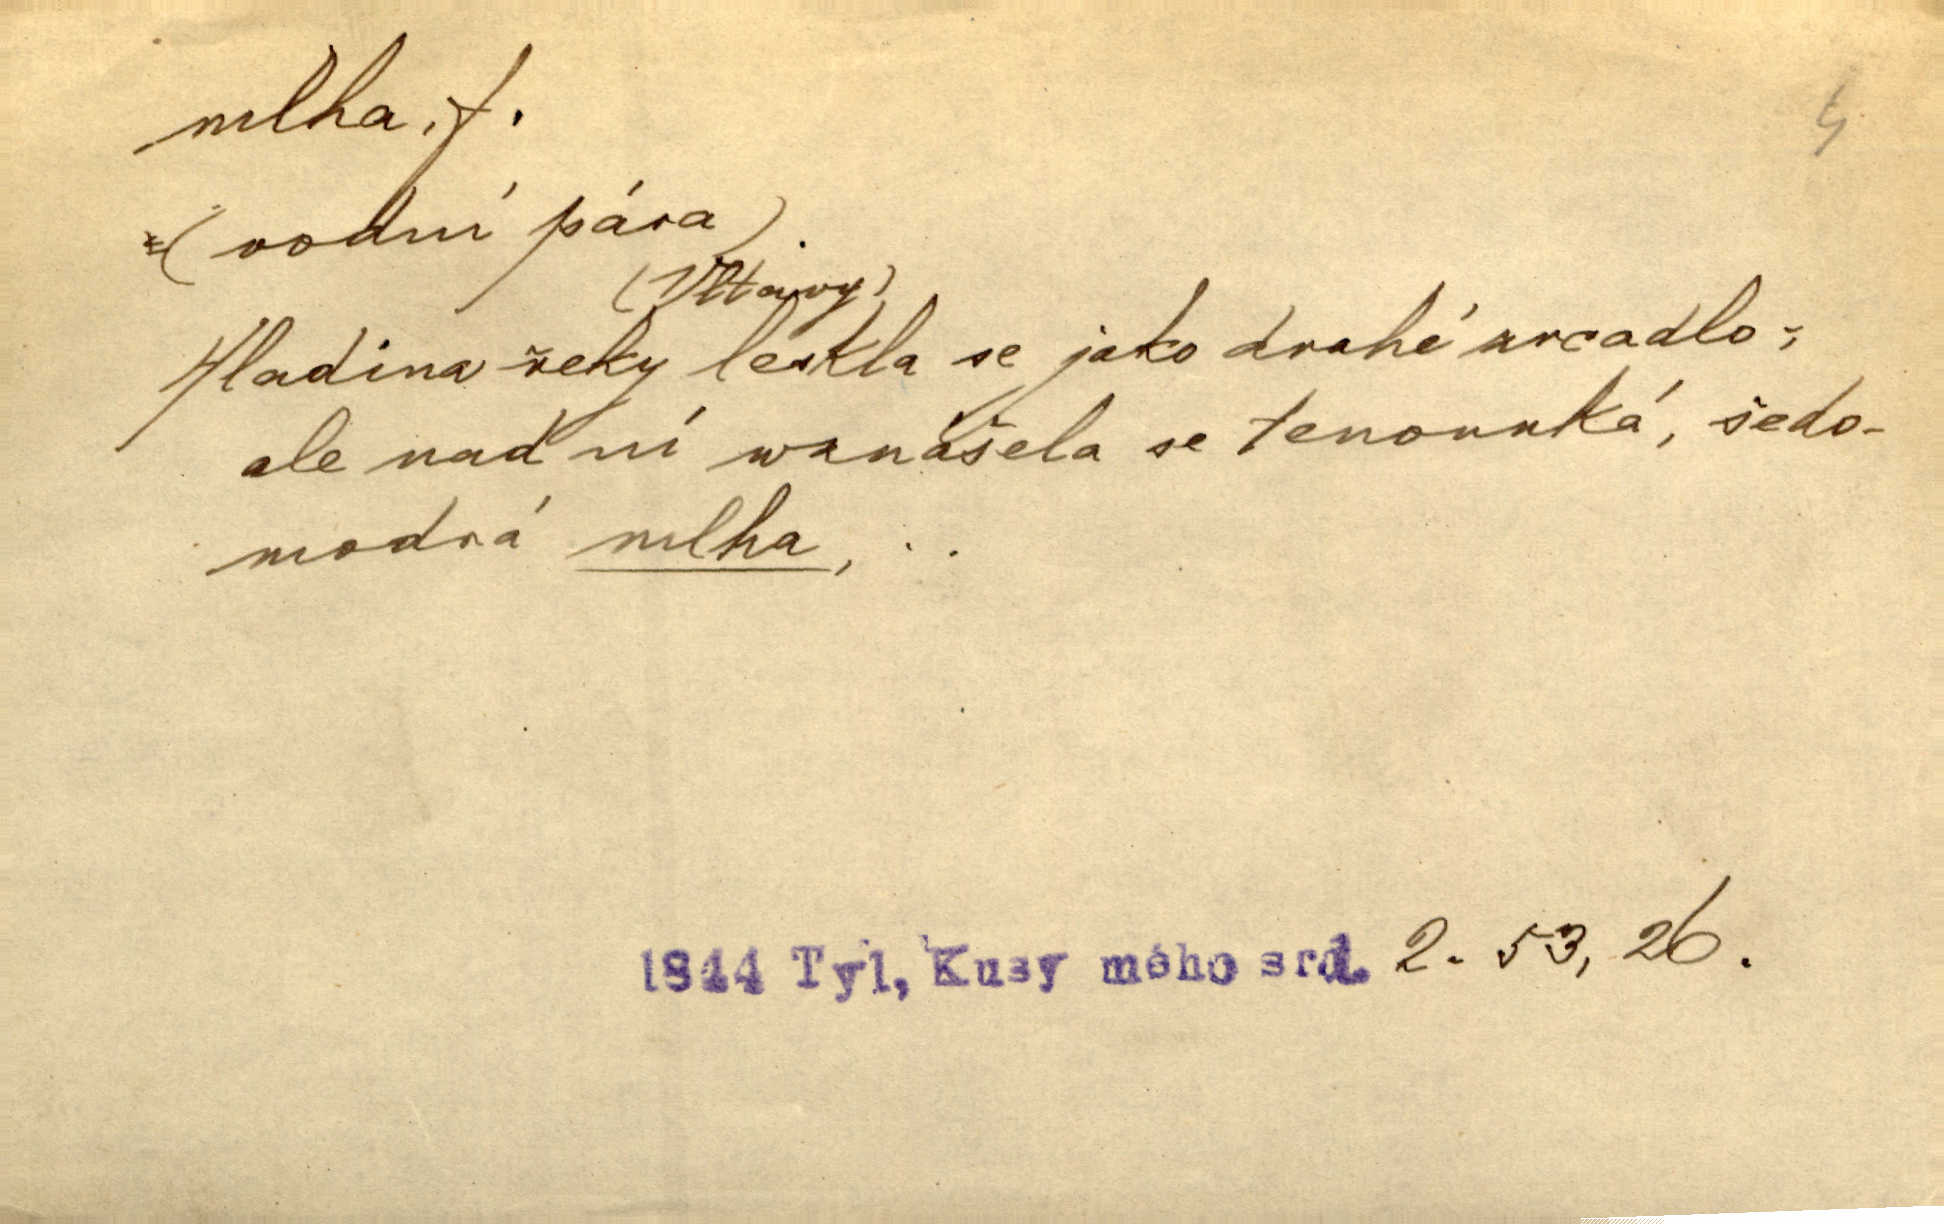 mlha, f.
= (vodní pára).
(Vltavy)
Hladina řeky leskla se jako drahé zrcadlo;
ale nad ní vznášela se tenounká, šedo-
modrá mlha, . .
1844 Tyl, Kusy mého srd. 2. 53, 26.